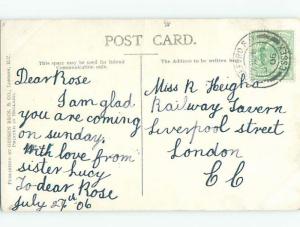 POST CARD.
This space may be used for Inland
Communication only.
The Address to be written here.
Dear Rose
I am glad
you are coming
on sunday.
With love from
sister Lucy
To dear Rose
July 27th 06
Miss R Heighs
Railway Tavern
Liverpool street
London
E C